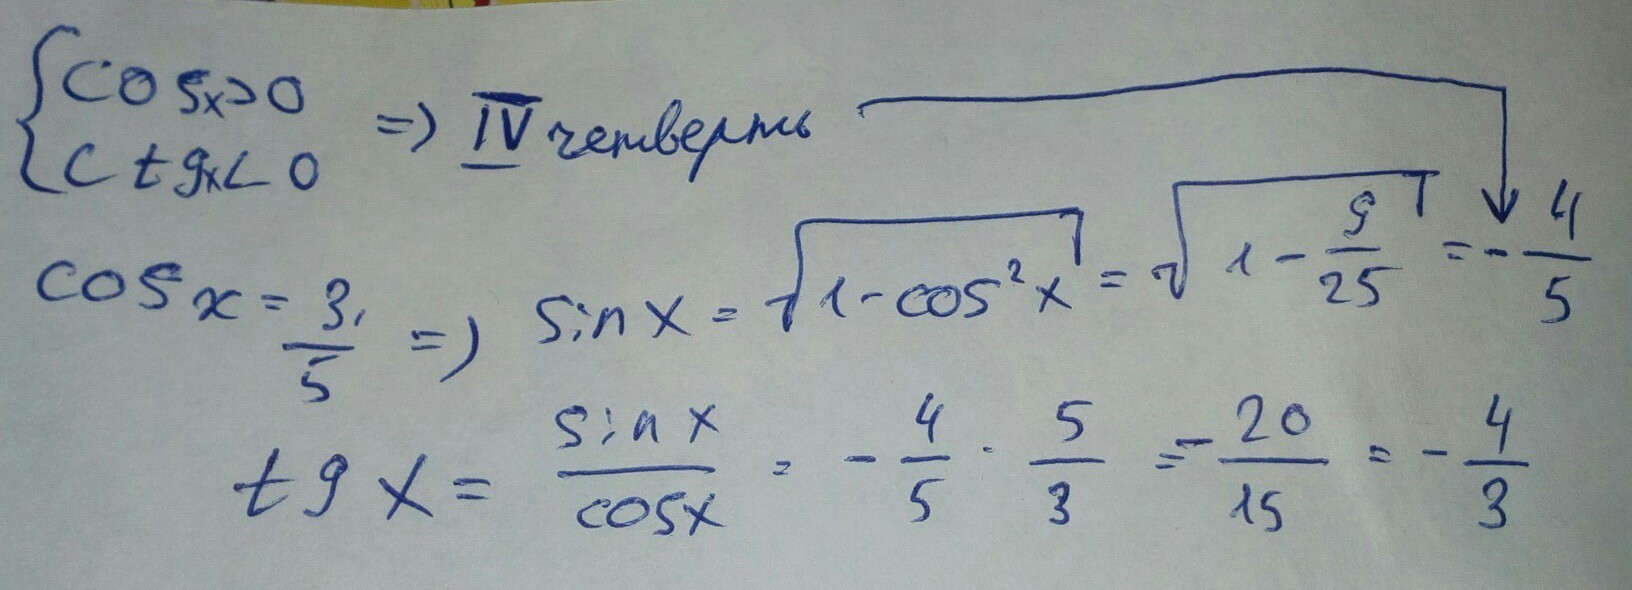 {cosx>0
{ctgx<0 => IV четверть
cos x = 3/5 => sin x = √(1-cos²x) = √(1 - 9/25) = - 4/5
tg x = sin x/cosx = - 4/5 · 5/3 = - 20/15 = - 4/3